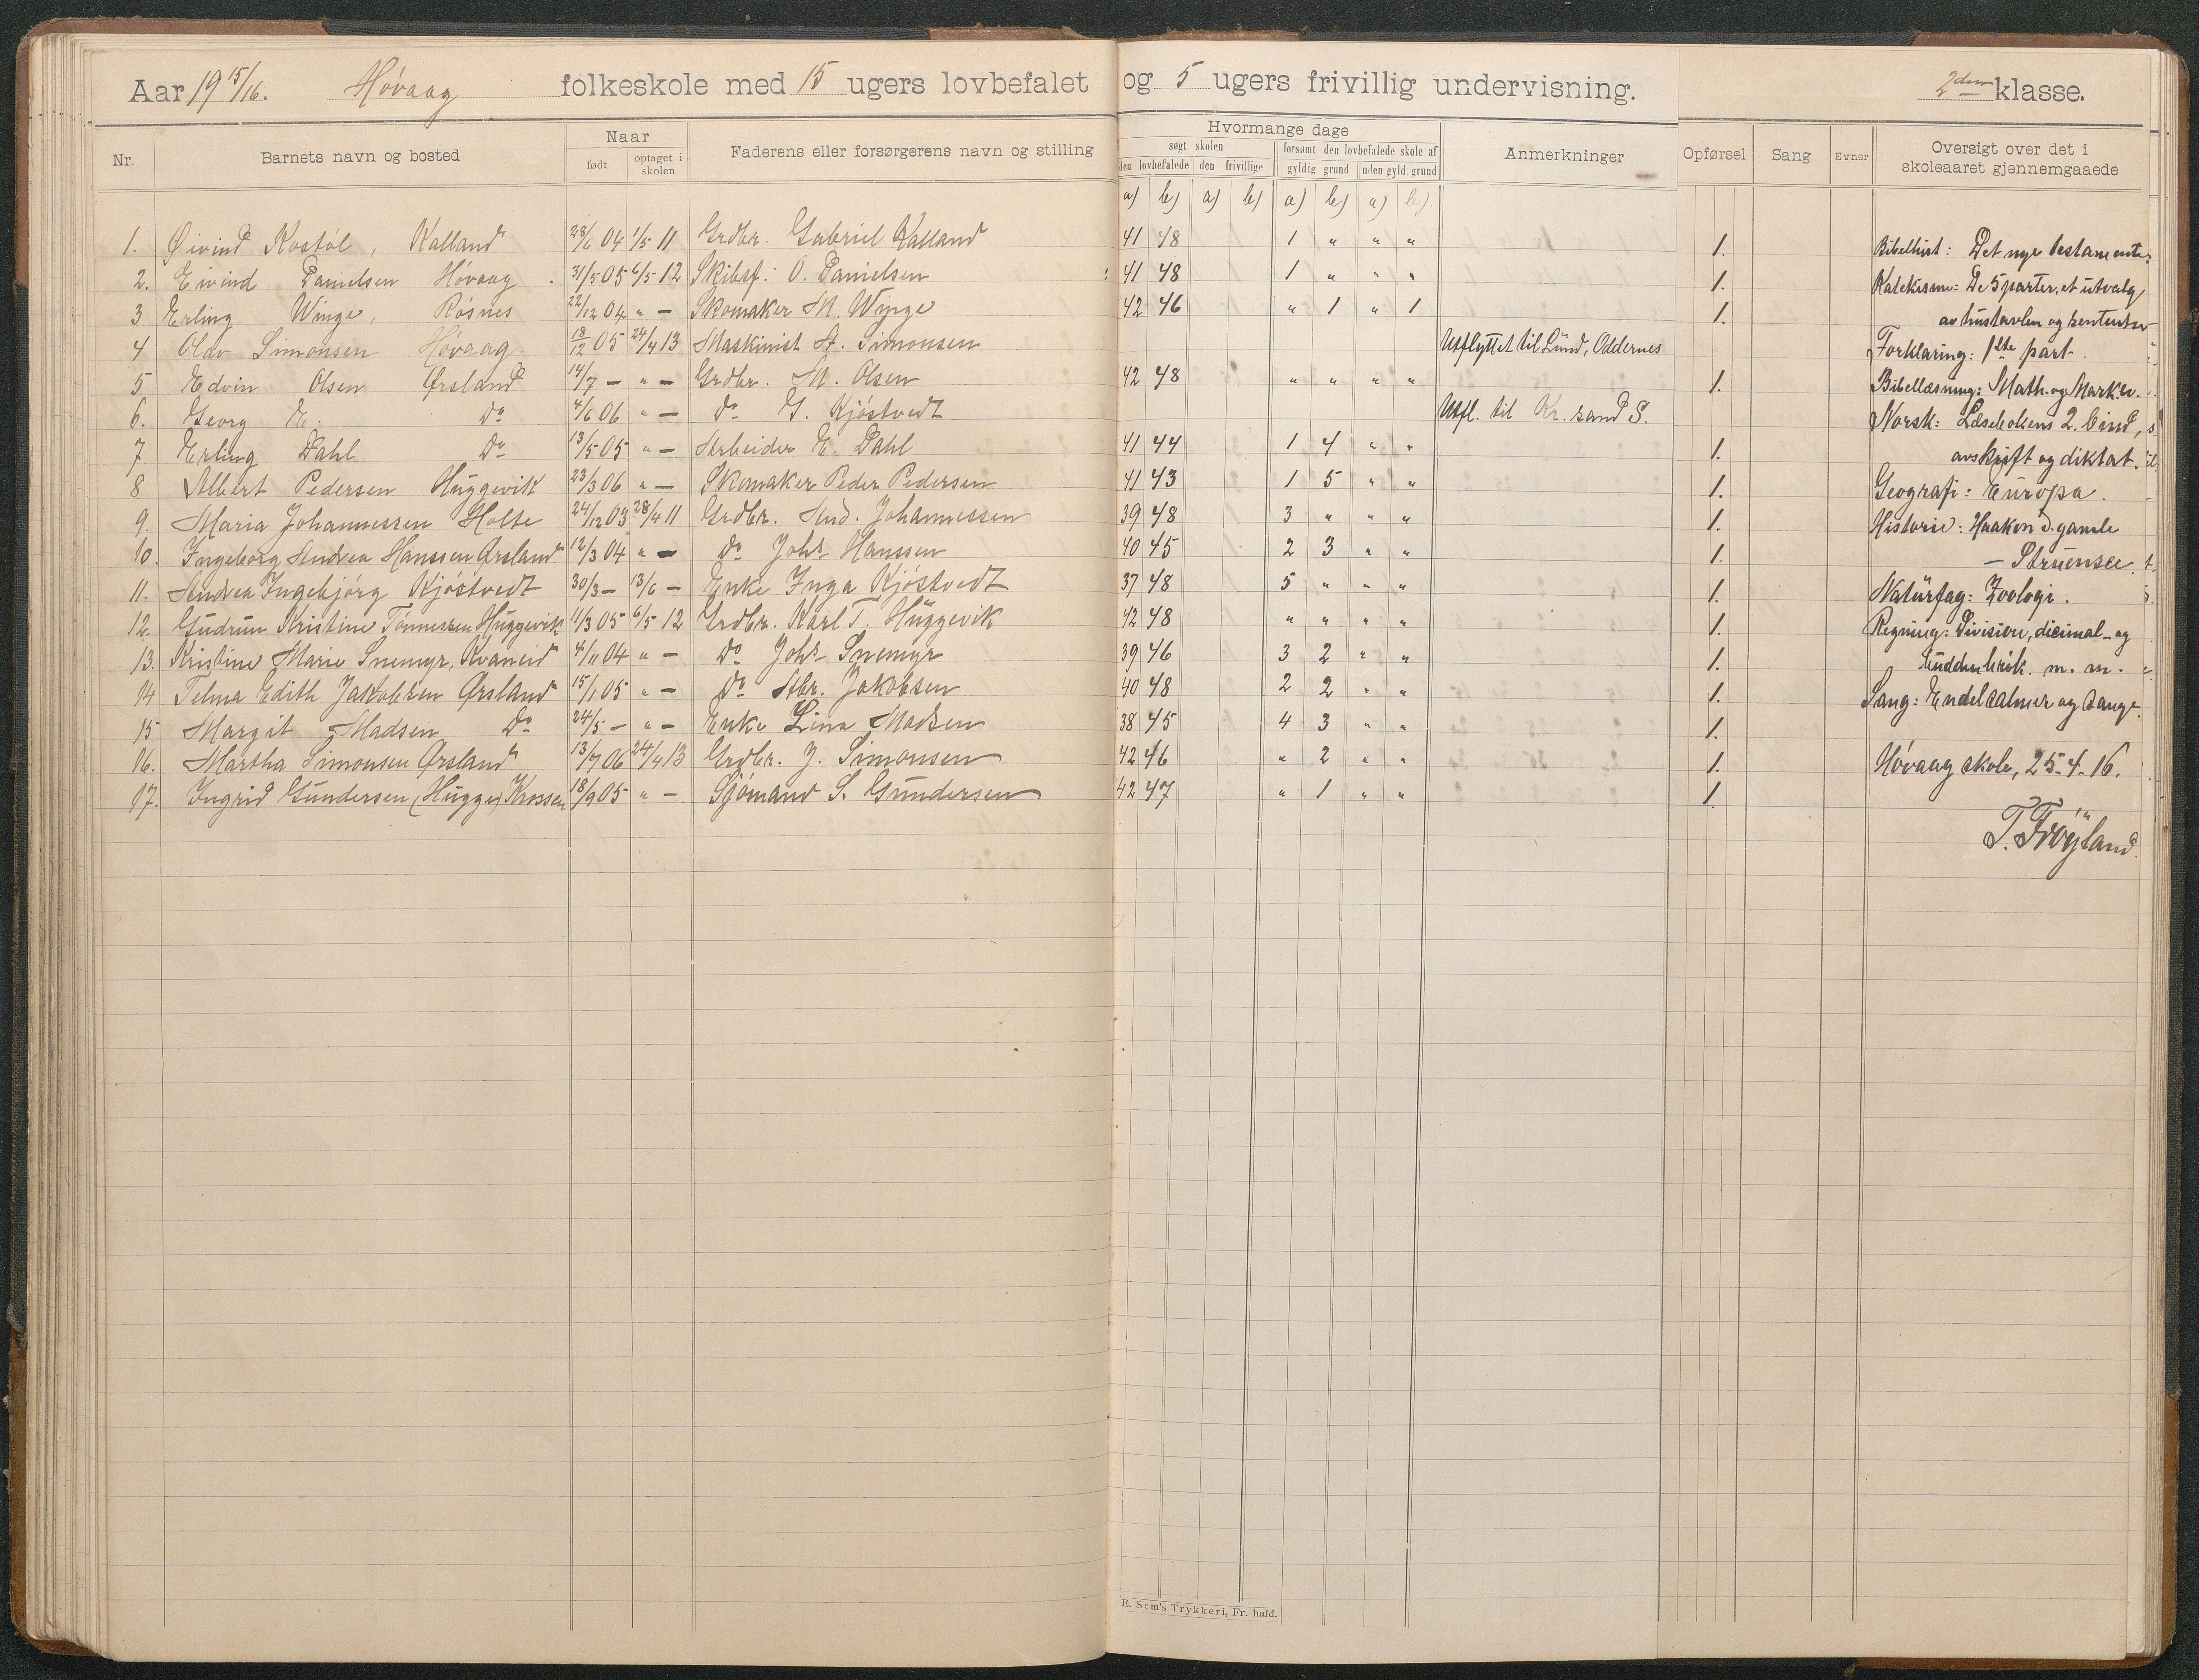 Aar 19 15/16. Høvaag folkeskole med 15 ugers lovbefalet og 5 ugers frivillig undervisning. 2den klasse.
Nr. Barnets navn og bosted Naar født optaget i skolen Faderens eller forsørgerens navn og stilling Hvormange dage søgt skolen den lovbefalede den frivillige forsømt den lovbefalede skole af gyldig grund uden gyld. grund Anmerkninger Opførsel Sang Evner Oversigt over det i skoleaaret gjennemgaaede
a) b) a) b) a) b) a) b).
1. Øivind Kostøl, Kalland 28/6 04 1/5 11 Grdbr. Gabriel Kalland 41 48 1 " " " 1. Bibelhist: Det nye testamente.
2. Eivind Danielsen Høvaag 31/5 05 6/5 12 Skibsf: O. Danielsen 41 48 1 " " " 1. Katekisme: De 5 parter, et utvalg
3 Erling Winge, Røsnes 22/12 04 " — Skomaker M. Winge 42 46 " 1 " 1 1. av hustavlen og sentenser
4 Olav Simonsen Høvaag 18/12 05 24/4 13 Maskinist A. Simonsen Utflyttet til Lund, Oddernes Forklaring: 1ste part.
5 Edvin Olsen Ørsland 14/7 — " — Grdbr. M. Olsen 42 48 " " " " 1. Bibellæsning: Math. og Mark. ev.
6. Georg K. Do 4/6 06 " — Do G. Kjøstvedt Utfl. til Kr.sand S. Norsk: Læsebokens 2. bind,
7 Erling Dahl Do 13/5 05 " — Arbeider E. Dahl 41 44 1 4 " " 1. avskrift og diktat.
8 Albert Pedersen Huggevik 23/3 06 " — Skomaker Peder Pedersen 41 43 1 5 " " 1. Geografi: Europa.
9. Maria Johannessen Holte 24/12 03 28/4 11 Grdbr. And. Johannessen 39 48 3 " " " 1. Historie: Haakon d. gamle
10. Ingeborg Andrea Hanssen Ørsland 12/3 04 " — Do Johs Hanssen 40 45 2 3 " " 1. — Struensee.
11. Andrea Ingebjørg Kjøstvedt 30/3 — 13/6 — Enke Inga Kjøstvedt 37 48 5 " " " 1. Naturfag: Zoologi.
12. Gudrun Kristine Tønnessen Huggevik 11/3 05 6/5 12 Grdbr. Karl T. Huggevik 42 48 " " " " 1. Regning: Division, decimal- og
13. Kristine Marie Snemyr, Kvaneid 4/11 04 " — Do Johs Snemyr 39 46 3 2 " " 1. uddenbrøk m. m.
14 Telma Edith Jakobsen Ørsland 15/1 05 " — Do Abr. Jakobsen 40 48 2 2 " " 1. Sang: En del salmer og sange.
15 Margit Madsen Do 24/5 — " — Enke Lina Madsen 38 45 4 3 " " 1.
16. Martha Simonsen Ørsland 13/7 06 24/4 13 Grdbr. J. Simonsen 42 46 " 2 " " 1. Høvaag skole, 25-4-16.
17. Ingrid Gundersen (Hugge) Krossen 18/9 05 " — Sjømand S. Gundersen 42 47 " 1 " " 1.
T. Frøyland
E. Sem's Trykkeri, Fr. hald.